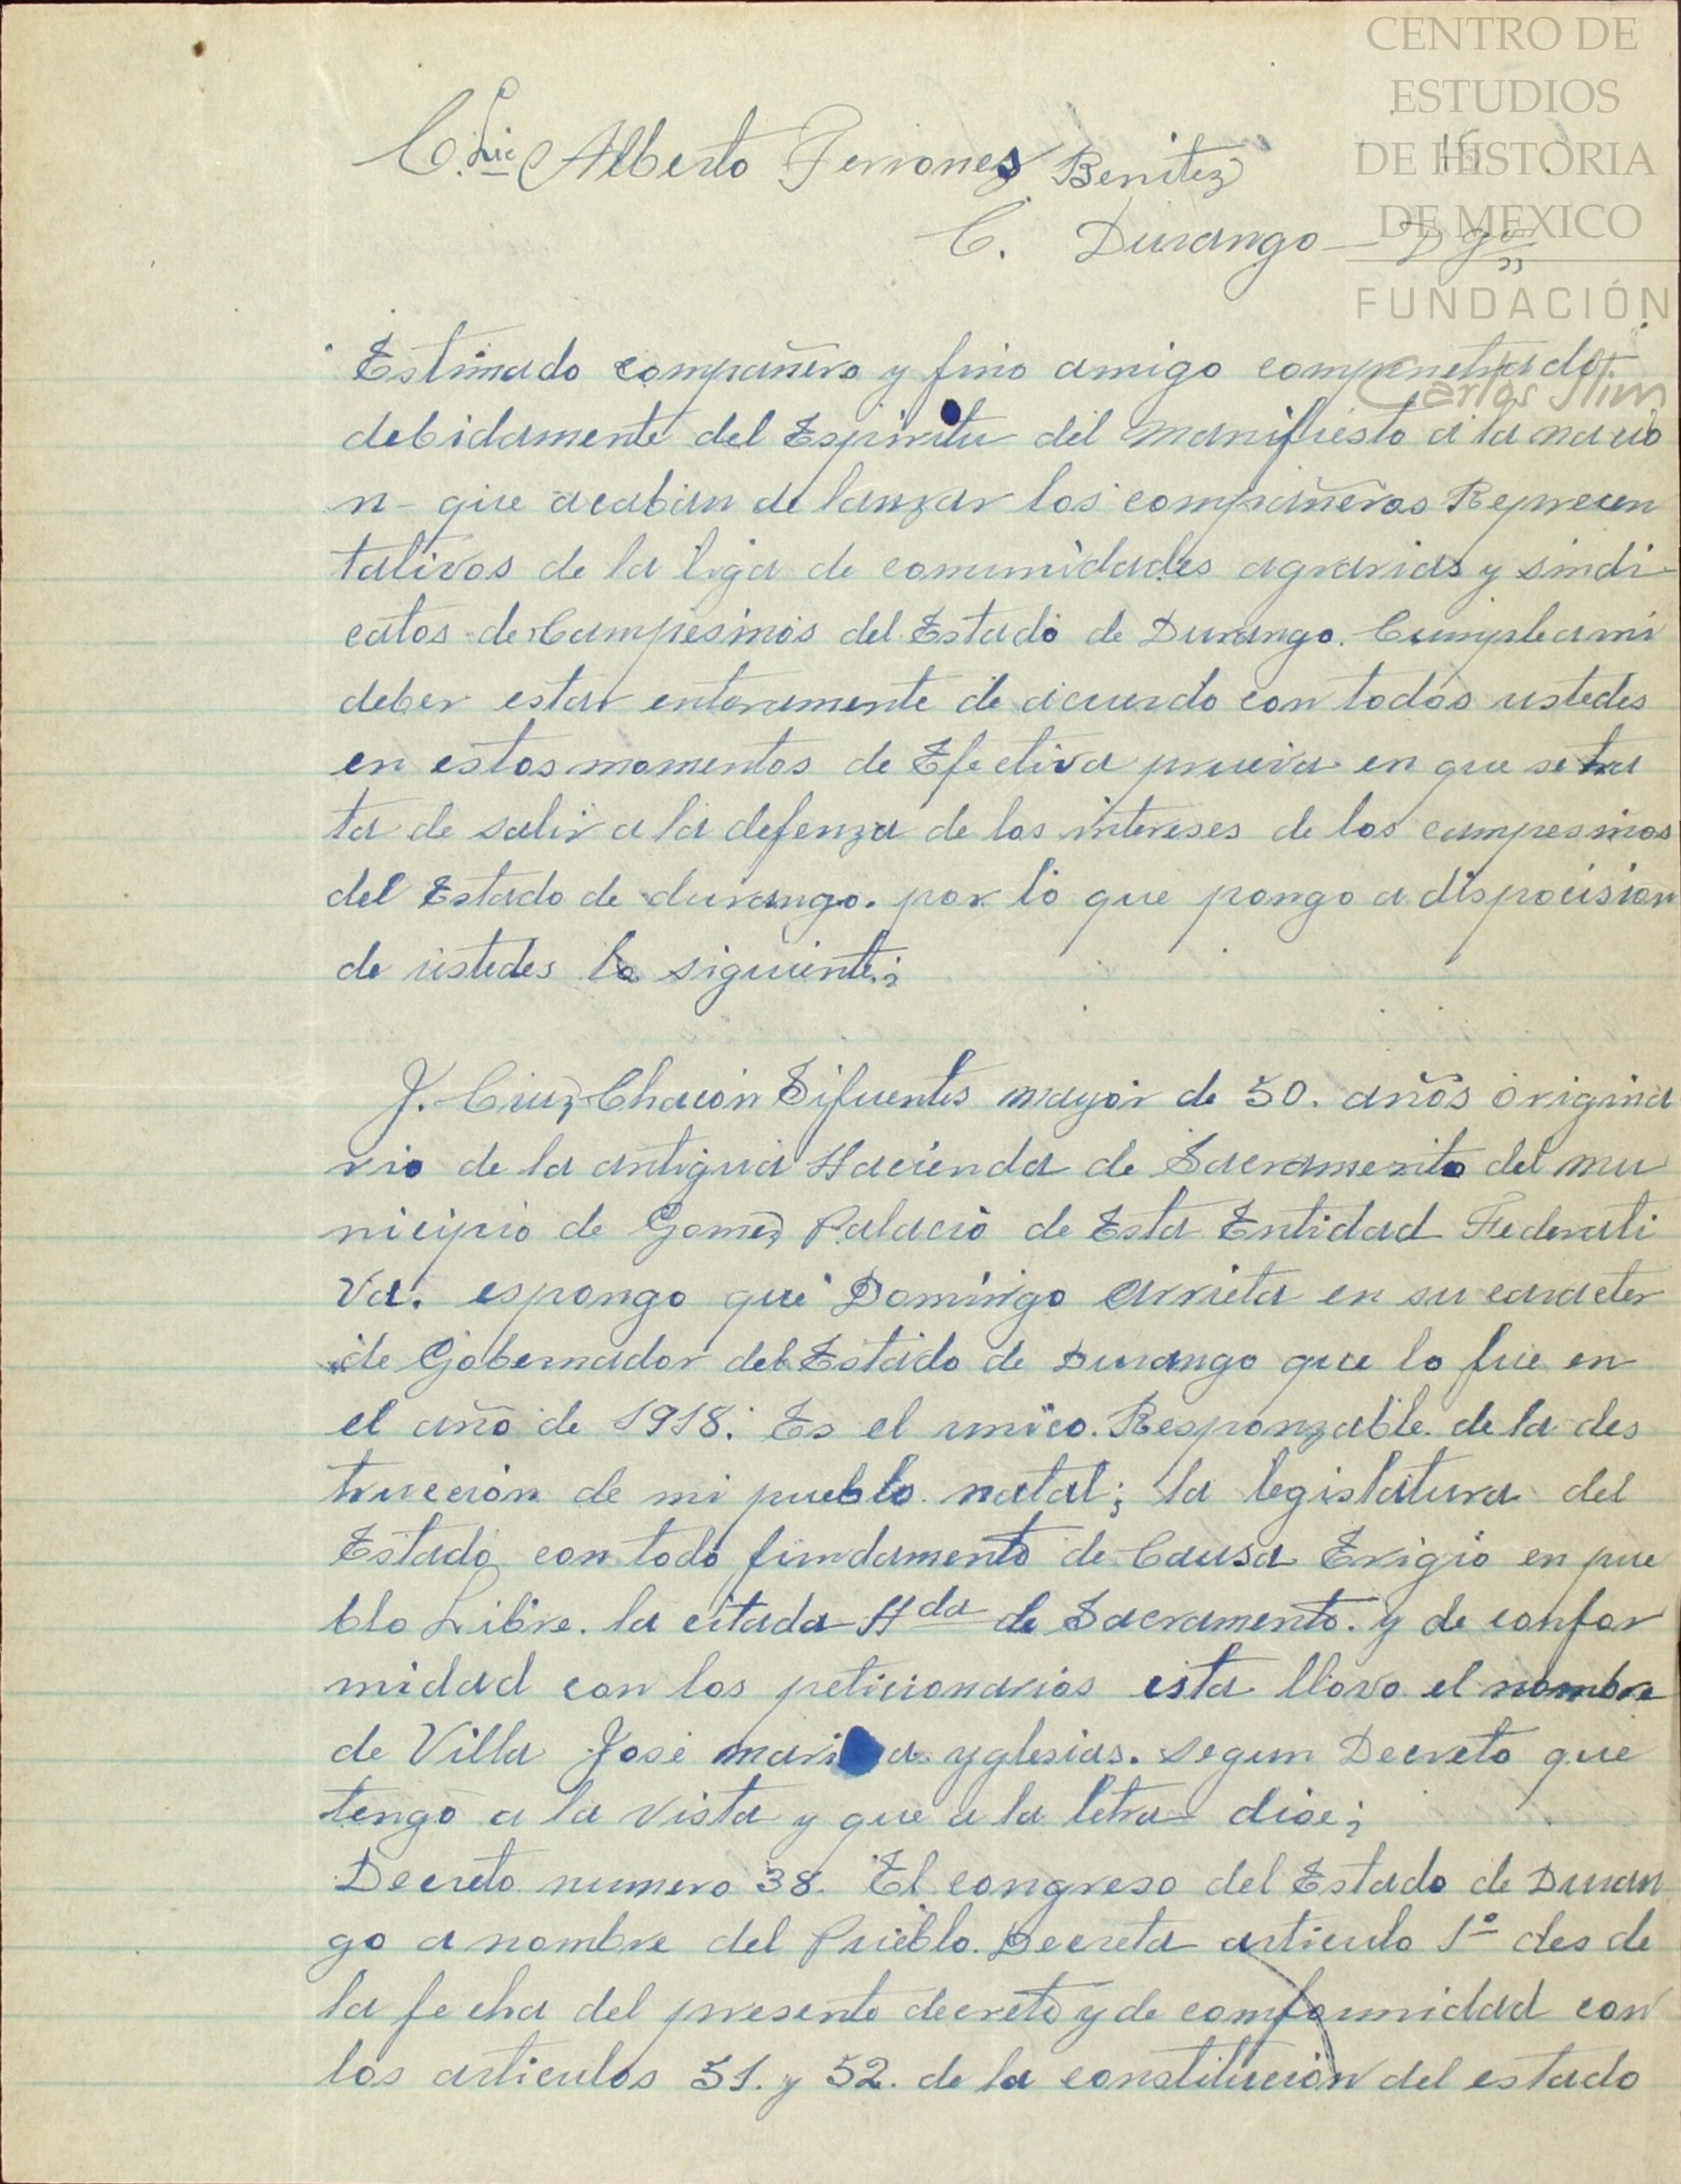 CENTRO DE
ESTUDIOS
DE HISTORIA
DE MEXICO
FUNDACIÓN
Carlos Slim
C. Lic Alberto Terrones Benitez
C. Durango - Dgo
Estimado compañero y fino amigo compenetrado
debidamente del Espiritu del manifiesto a la nacio
n - que acaban de lanzar los compañeros Represen
tativos de la liga de comunidades agrarias y sindi-
catos de Campesinos del Estado de Durango. Cumple a mi
deber estar enteramente de acuerdo con todos ustedes
en estos momentos de Efectiva prueva en que se tra
ta de salir a la defenza de los intereses de los campesinos
del Estado de durango. por lo que pongo a dispocision
de ustedes lo siguiente;
J. Cruz Chacon Sifuentes mayor de 50. años origina
rio de la antigua Hacienda de Sacramento del mu
nicipio de Gomez Palacio de Esta Entidad Federati
va. espongo que Domingo arrieta en su caracter
de Gobernador del Estado de Durango que lo fue en
el año de 1918. Es el unico. Responzable. de la des
truccion de mi pueblo natal; la legislatura del
Estado con todo fundamento de Causa Erigio en pue
blo Libre. la citada Hda de Sacramento. y de confor
midad con los peticionarios esta llevo el nombre
de Villa José maria yglesias. segun Decreto que
tengo a la vista y que a la letra dise;
Decreto numero 38. El congreso del Estado de Duran
go a nombre del Pueblo. Decreta articulo 1º des de
la fecha del presente decreto y de comformidad con
los articulos 51. y 52. de la constitucion del estado